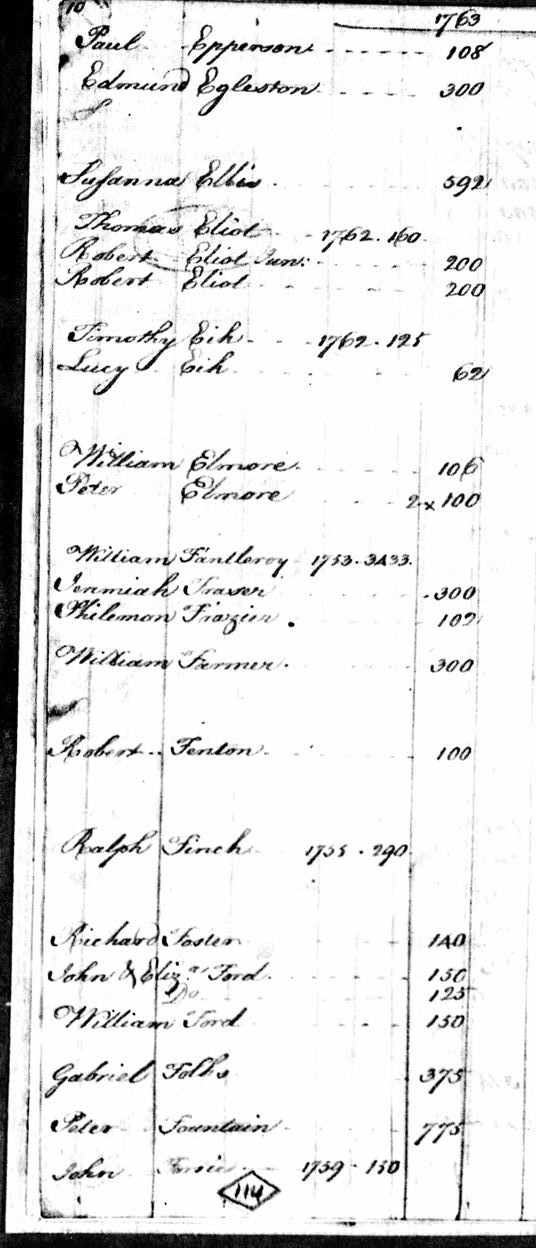 10
1763
Paul Epperson 108
Edmund Egleston 300
Susanna Ellis 592
Thomas Eliot 1762 . 160
Robert Eliot Jun: 200
Robert Eliot 200
Timothy Eih 1762 . 125
Lucy Eih 62
William Elmore 106
Peter Elmore 2 x 100
William Fantleroy 1753 . 3433
Jeremiah Fraser 300
Philemon Frazier 102
William Farmer 300
Robert Fenton 100
Ralph Finch 1755 . 290
Richard Foster 140
John & Eliz.a Ford 150
Do 125
William Ford 150
Gabriel Folks 375
Peter Fountain 775
John 1759 . 150
114